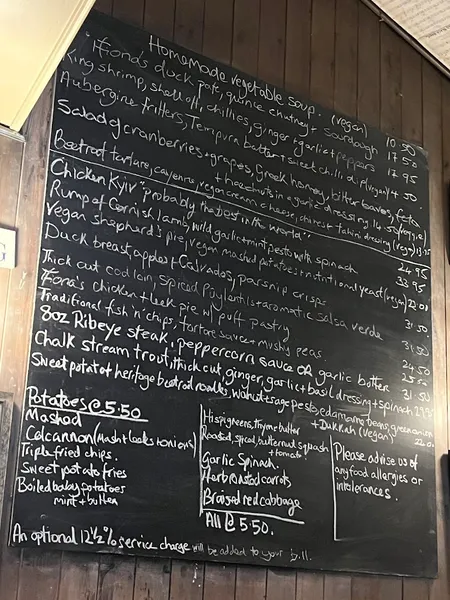 Homemade vegetable soup. (vegan) 10.50
"Fiona's duck pate, quince chutney + sourdough 17.50
King shrimp, shell off, chillies, ginger + garlic + peppers 17.95
Aubergine fritters, Tempura batter + sweet chilli dip (vegan) 14.50
Salad of cranberries + grapes, greek honey, bitter leaves, feta
+ hazelnuts in a garlic dressing 14.50 (veg)
Beetroot tartare, cayenne, vegan cream cheese, chinese + tahini dressing (vegan) 13.95
Chicken Kyiv "probably the best in the world" 24.95
Rump of Cornish lamb, wild garlic + mint pesto with spinach 33.95
Vegan shepherd's pie, vegan mashed potatoes + nutritional yeast (vegan) 22.00
Duck breast, apples + Calvados, parsnip crisps 31.50
Thick cut cod loin, spiced Puy lentils + aromatic salsa verde 31.50
Fiona's chicken + leek pie w/ puff pastry 24.50
Traditional fish 'n' chips, tartare sauce + mushy peas. 25.50
8oz Ribeye steak, peppercorn sauce OR garlic butter 31.50
Chalk stream trout, thick cut, ginger, garlic + basil dressing + spinach 29.95
Sweet potato + heritage beetroot noodles, walnut + sage pesto, edamame beans, green onion
+ Dukkah (vegan) 22.00
Potatoes @ 5.50
Mashed
Colcannon (Mash + leeks + onions)
Triple fried chips.
Sweet potato fries
Boiled baby potatoes
mint + butter
Hispi greens, thyme butter
Roasted, spiced, butternut squash
+ tomato
Garlic Spinach.
Herb roasted carrots
Braised red cabbage
All @ 5.50.
Please advise us of
any food allergies or
intolerances.
An optional 12½% service charge will be added to your bill.